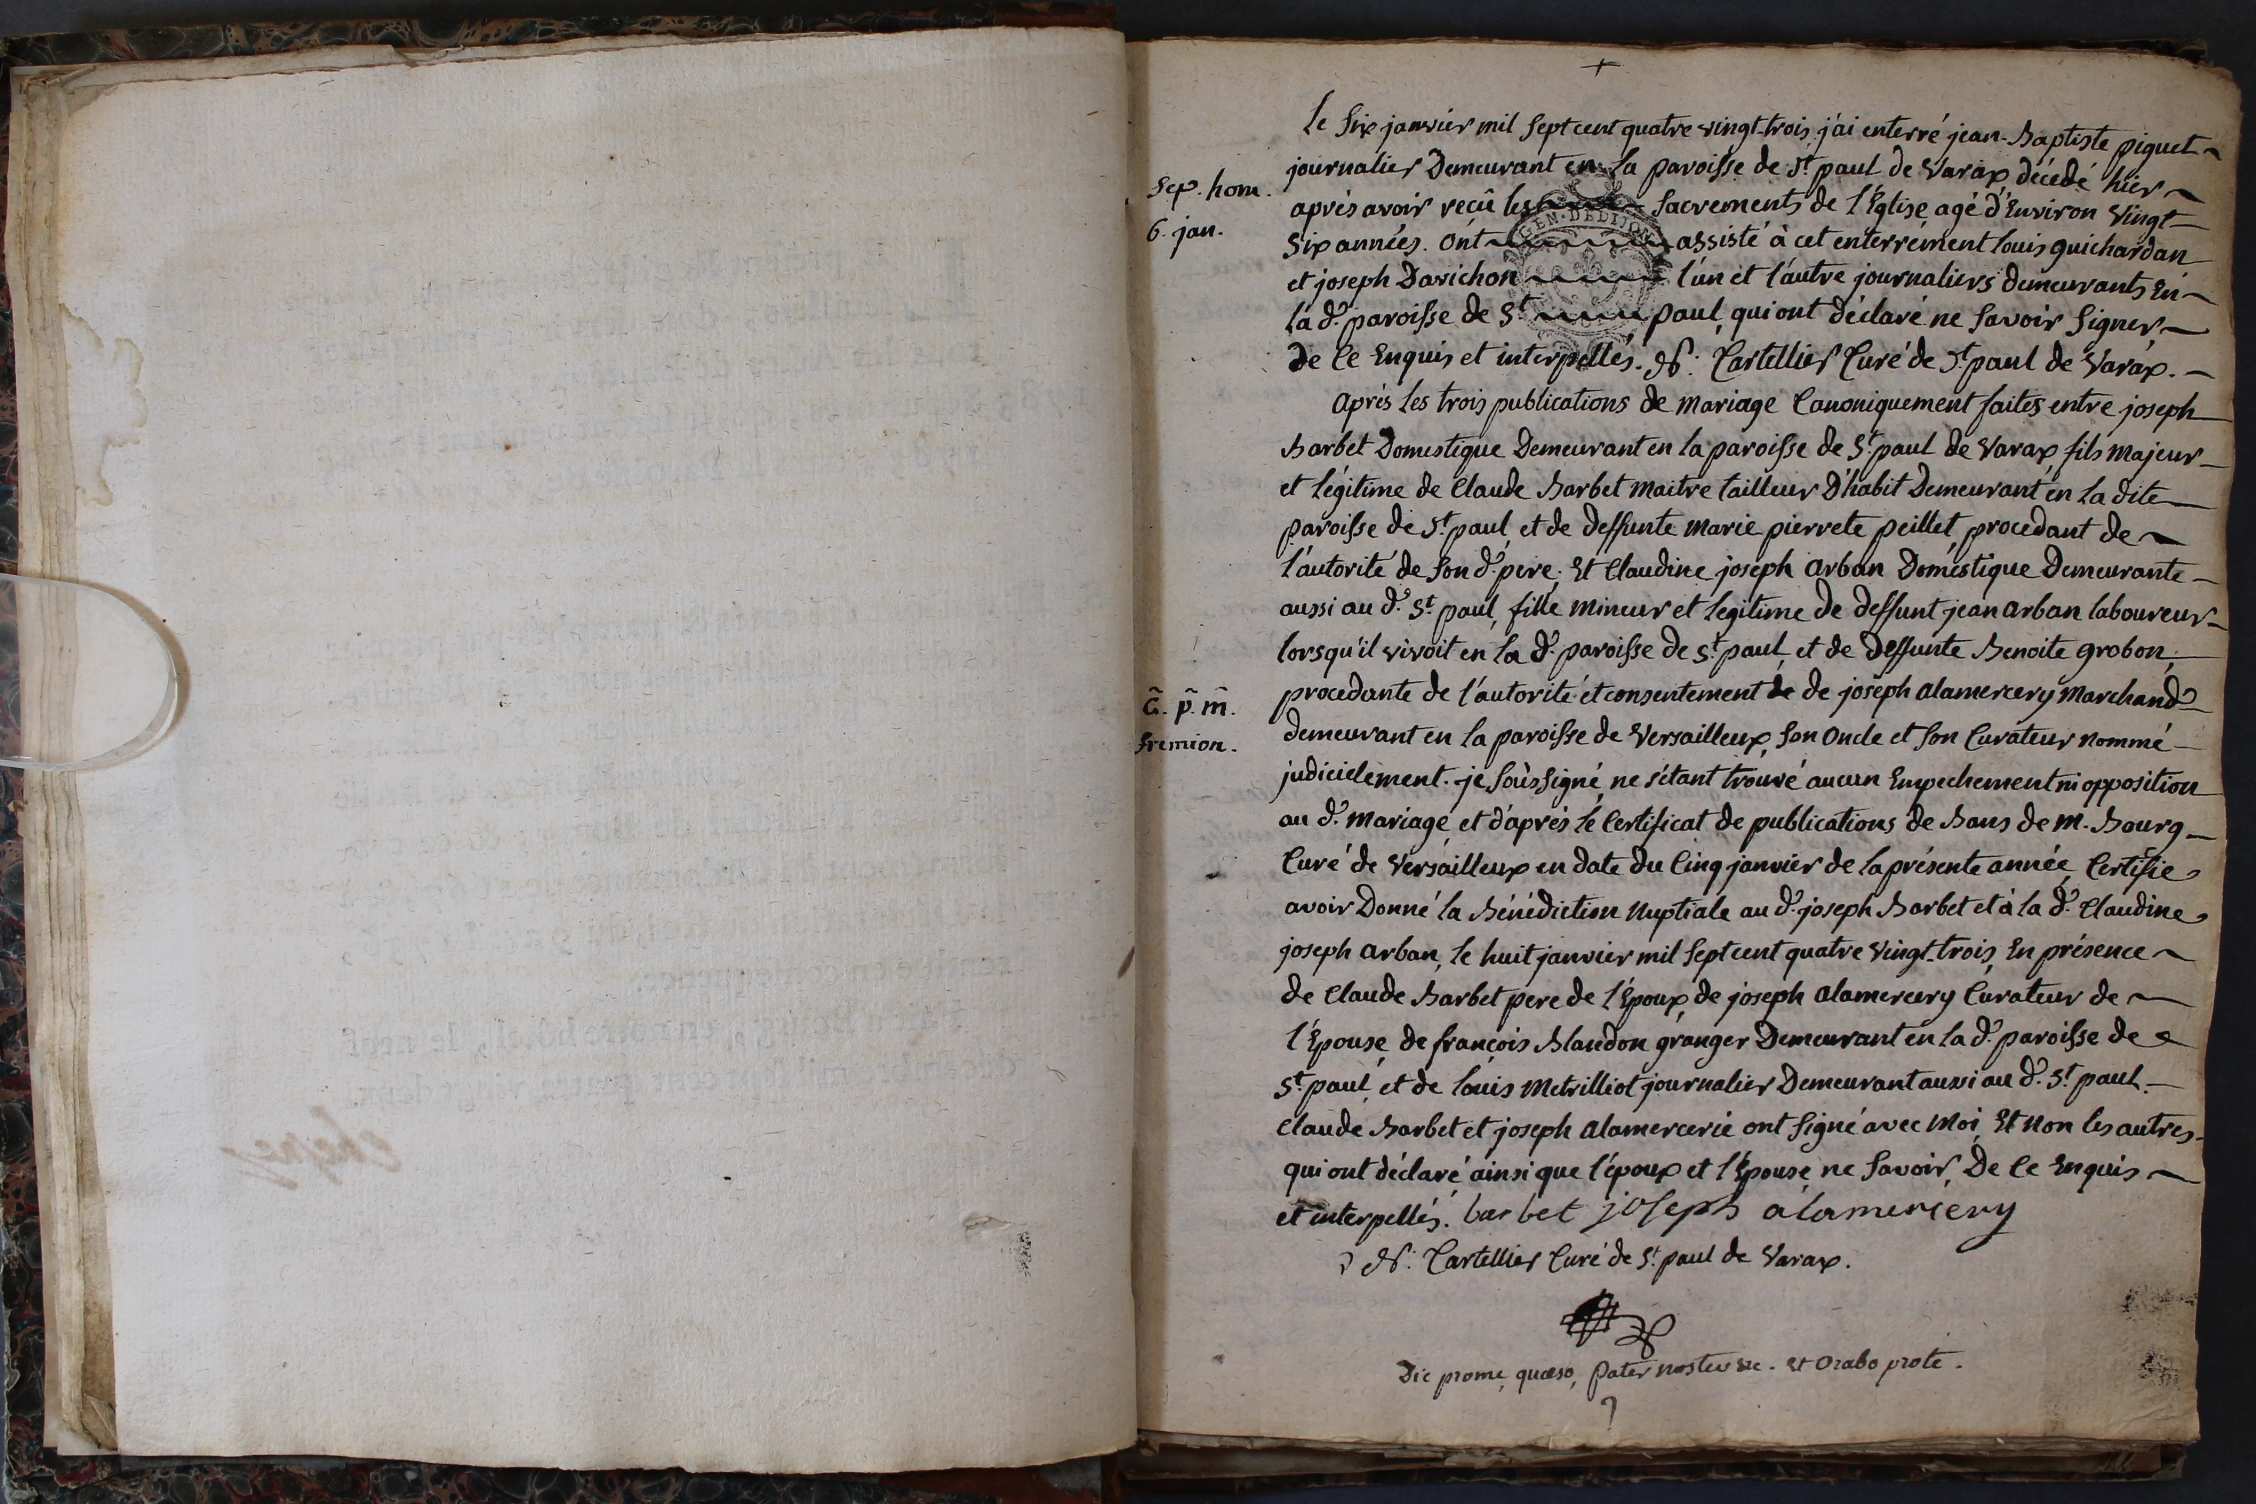 +
Le six janvier mil sept cent quatre vingt-trois, j'ai enterré jean-Baptiste piguet
Sep. hom.
6. jan.
journalier Demeurant en la paroisse de St. paul de Varax, décédé hier
après avoir reçû les sacrements de l'Eglise, agé d'Environ Vingt
Six années. Ont assisté à cet enterrément Louis guichardan
GEN. DE DIJON
et joseph Davichon l'un et l'autre journaliers demeurants En
la d. paroisse de St. paul, qui ont déclaré ne savoir signer,
de ce Enquis et interpellés. Cartellier Curé de St. paul de Varax.
Après les trois publications de mariage Canoniquement faites entre joseph
Barbet Domestique Demeurant en la paroisse de St. paul de Varax, fils majeur
et légitime de Claude Barbet maitre tailleur D'habit Demeurant en la dite
paroisse de St. paul, et de deffunte marie pierrete peillet, procedant de
l'autorité de son d. père. Et Claudine joseph Arban Doméstique Demeurante
aussi au d. St. paul, fille mineur et legitime de deffunt jean Arban laboureur
lorsqu'il vivoit en la d. paroisse de St. paul, et de deffunte Benoite grobon,
C. p. m.
fremion.
procedante de l'autorité et consentement de de joseph Alamercery marchand
demeurant en la paroisse de Versailleux, son Oncle et son Curateur nommé
judicielement. je soùssigné, ne s'étant trouvé aucun Empechement ni opposition
au d. mariage, et d'après le Certificat de publications de Bans de M. Bourg
Curé de Versailleux en date du Cinq janvier de la présente année, Certifie
avoir Donné la Bénédiction Nuptiale au d. joseph Barbet et à la d. Claudine
joseph Arban, le huit janvier mil sept cent quatre Vingt-trois, En présence
de Claude Barbet pere de l'Epoux, de joseph Alamercery Curateur de
l'Epouse, de françois Blandon granger Demeurant en la d. paroisse de
St. paul, et de Louis Metrilliot journalier Demeurant aussi au d. St. paul.
Claude Barbet et joseph Alamercerie ont signé avec Moi, Et Non les autres
qui ont déclaré ainsi que l'époux et l'Epouse, ne savoir, De Ce Enquis
et interpellés. barbet joseph alamercery
Cartellier Curé de St. paul de Varax.
Dic pro me, quæso, Pater noster &c. Et Orabo pro te.